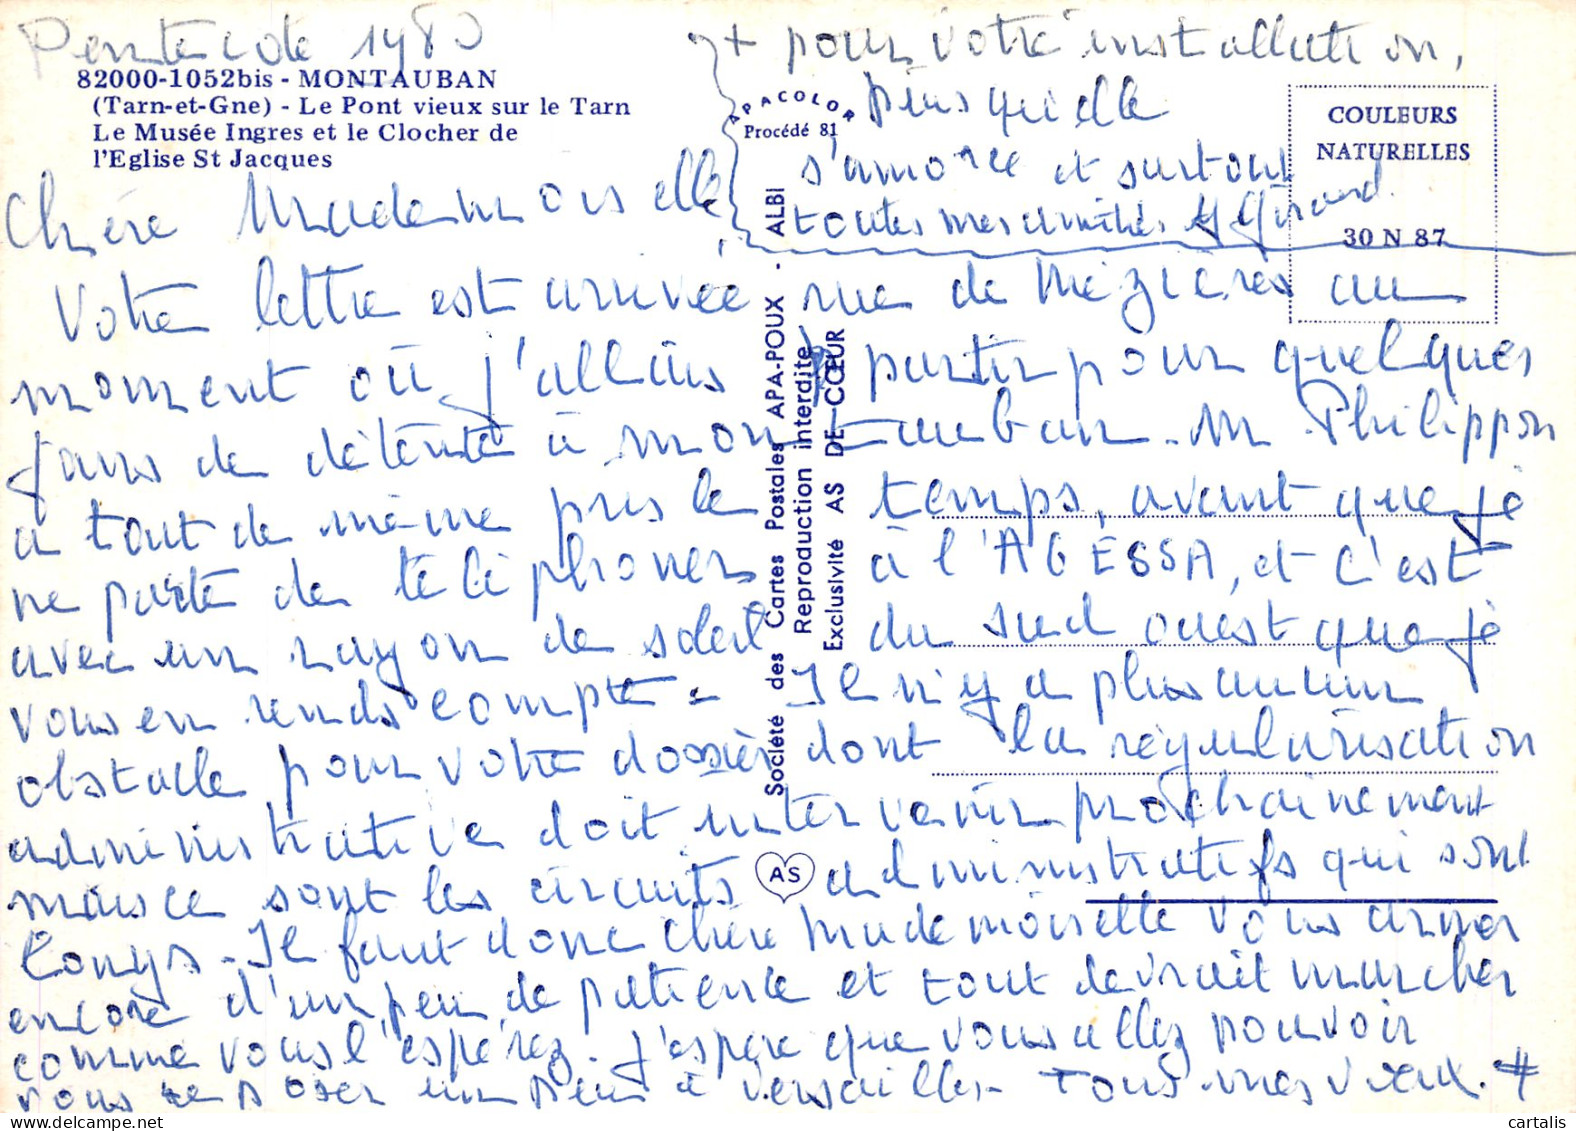 Pentecôte 1980
82000-1052bis - MONTAUBAN
(Tarn-et-Gne) - Le Pont vieux sur le Tarn
Le Musée Ingres et le Clocher de
l'Eglise St Jacques
Chère Mademoiselle,
Votre lettre est arrivée rue de Mézières au
moment où j'allais partir pour quelques
jours de détente à Montauban. M Philippon
a tout de même pris le temps, avant que je
ne parte de téléphoner à l'AGESSA, et c'est
avec un rayon de soleil du sud ouest que je
vous en rends compte = Il n'y a plus aucun
obstacle pour votre dossier dont la régularisation
administrative doit intervenir prochainement
mais ce sont les circuits administratifs qui sont
longs - Il faut donc chère Mademoiselle vous armer
encore d'un peu de patience et tout devrait marcher
comme vous l'espérez. J'espère que vous allez pouvoir
vous reposer un peu à Versailles - Tous mes vœux. #
+ pour votre installation,
puisqu'elle
s'amorce et surtout
toutes mes amitiés Y Girard.
APACOLOR
Procédé 81
COULEURS
NATURELLES
30 N 87
Société des Cartes Postales APA-POUX - ALBI
Reproduction interdite
Exclusivité AS DE CŒUR
AS
cartalis